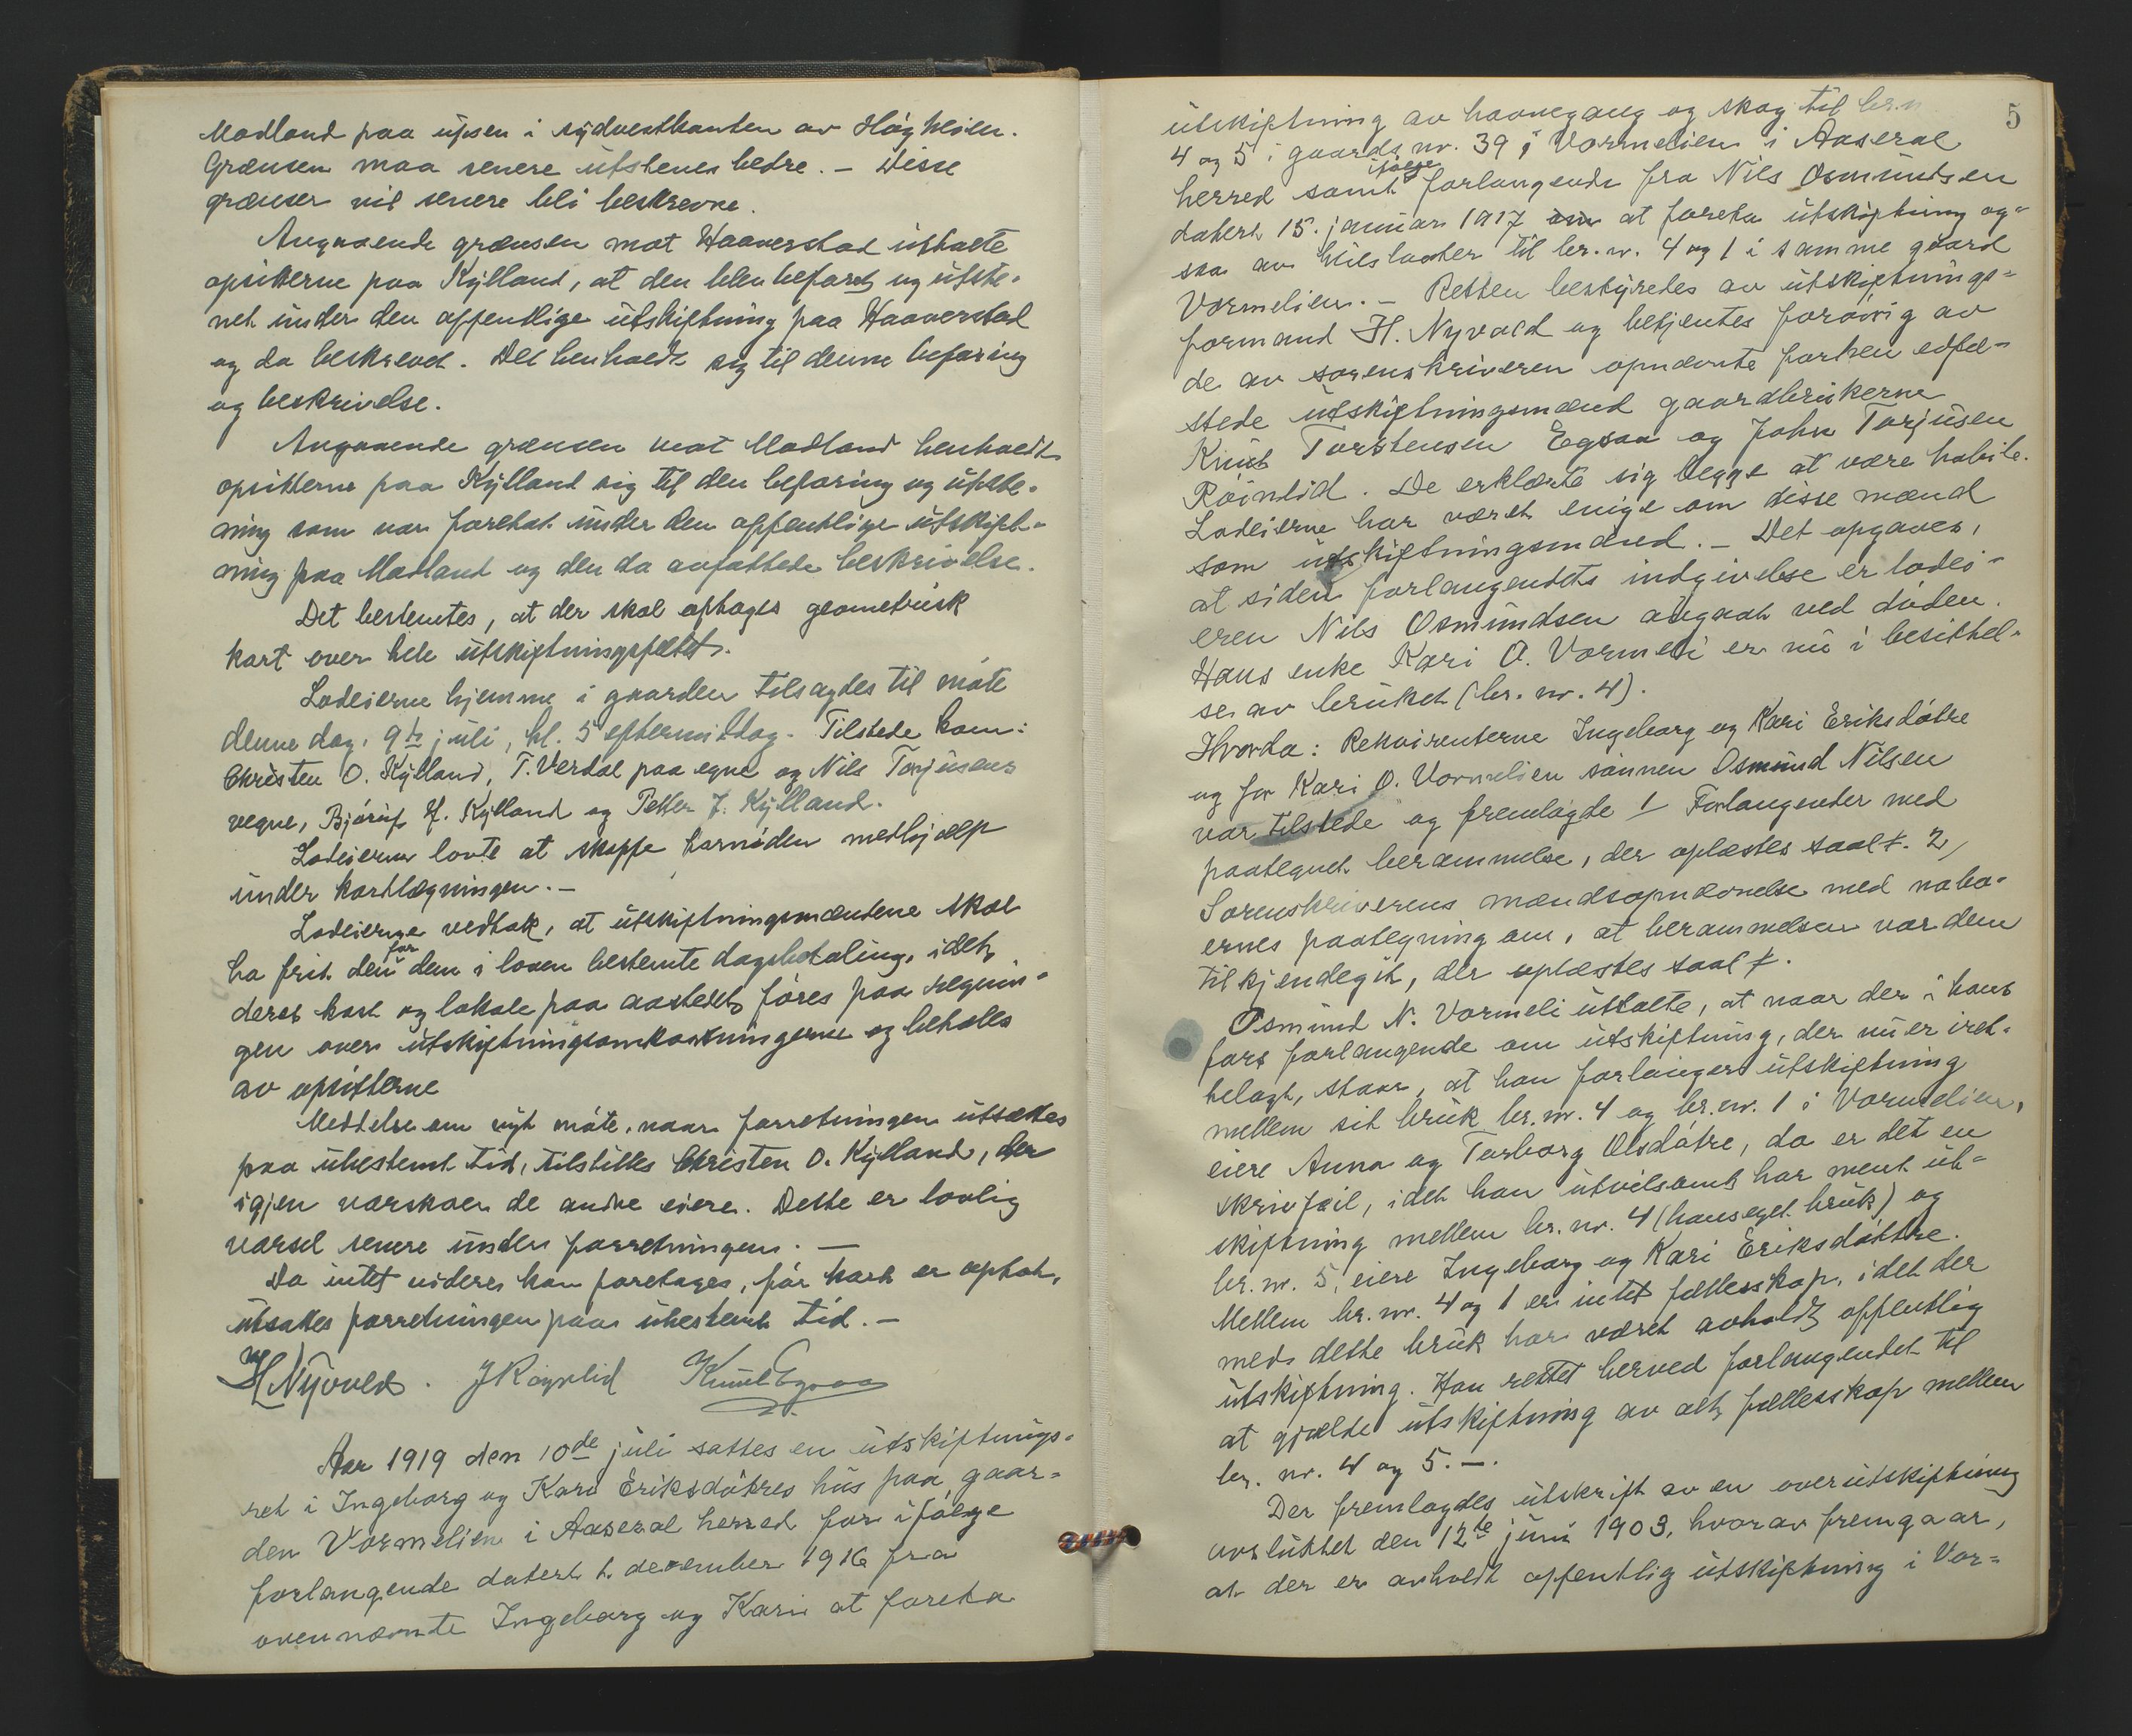 Madland paa upsen i sydvestkanten av Høgheien.
Grænsen maa senere utstenes bedre. — Disse
grænser vil senere bli beskrevne.
Angaaende grænsen mot Haaverstad uttalte
opsitterne paa Kylland, at den blev befaret og utste-
net under den offentlige utskiftning paa Haaverstad
og da beskrevet. Det henholdt sig til denne befaring
og beskrivelse.
Angaaende grænsen mot Madland henholdt
opsitterne paa Kylland sig til den befaring og utste-
ning som var foretat under den offentlige utskift-
ning paa Madland og den da avfattede beskrivelse.
Det bestemtes, at der skal optages geometrisk
kart over hele utskiftningsfeltet.
Lodeierne hjemme i gaarden tilsagdes til møte
denne dag, 9de juli, kl. 5 eftermiddag. Tilstede kom:
Christen O. Kylland, T. Verdal paa egne og Nils Torjusens
vegne, Bjørulf H. Kylland og Petter J. Kylland.
Lodeierne lovte at skaffe fornøden medhjælp
under kartlægningen. —
Lodeierne vedtok, at utskiftningsmændene skal
for
ha frit den dem i loven bestemte dagsbetaling, idet
deres kost og lokale paa aastedet føres paa regnin-
gen over utskiftningsomkostningerne og betales
av opsitterne
Meddelse om nyt møte, naar forretningen utsættes
paa ubestemt tid, tilstilles Christen O. Kylland, der
igjen varskoer de andre eiere. Dette er lovlig
varsel senere under forretningen. —
Da intet videre kan foretages, før kart er optat,
utsattes forretningen paa ubestemt tid. —
H Nyvold. J Røynlid Knut Egsaa
Aar 1919 den 10de juli sattes en utskiftnings-
ret i Ingeborg og Kari Eriksdøtres hus paa gaar-
den Vormelien i Aaseral herred for ifølge
forlangende datert 1. december 1916 fra
ovennævnte Ingeborg og Kari at foreta
5
utskiftning av havnegang og skog til br.n
4 og 5 i gaards nr. 39, Vormelien i Aaseral
ifølge
herred samt forlangende fra Nils Osmundsen
datert 15. januar 1917 om at foreta utskiftning og-
saa av huslaater til br. nr. 4 og 1 i samme gaard
Vormelien. — Retten bestyredes av utskiftnings-
formand H. Nyvold og betjentes forøvrig av
de av sorenskriveren opnævnte forhen edfæ-
stede utskiftningsmænd gaardbrukerne
Knut Torstensen Egsaa og John Torjusen
Røinlid. De erklærte sig begge at være habile.
Lodeierne har været enige om disse mænd
som utskiftningsmænd. — Det opgaves,
at siden forlangendets indgivelse er lodei-
eren Nils Osmundsen avgaat ved døden.
Hans enke Kari O. Vormeli er nu i besittel-
se av bruket (br. nr. 4).
Hvorda: Rekvirenterne Ingeborg og Kari Eriksdøtre
og for Kari O. Vormelien sønnen Osmund Nilsen
var tilstede og fremlagde 1/ Forlangender med
paategnet berammelse, der oplæstes saal ≠. 2/
Sorenskriverens mændsopnævnelse med nabo-
ernes paategning om, at berammelsen var dem
tilkjendegit, der oplæstes saal ≠.
Osmund N. Vormeli uttalte, at naar der i hans
fars forlangende om utskiftning, der nu er iret-
telagt, staar, at han forlanger utskiftning
mellem sit bruk br. nr. 4 og br. nr. 1 i Vormelien,
eiere Anna og Torborg Olsdøtre, da er det en
skrivfeil, idet han utvilsomt har ment ut-
skiftning mellem br. nr. 4 (hans eget bruk) og
br. nr. 5, eiere Ingeborg og Kari Eriksdøttre.
Mellem br. nr. 4 og 1 er intet fællesskap, idet der
med dette bruk har været avholdt offentlig
utskiftning. Han rettet herved forlangendet til
at gjælde utskiftning av alt fællesskap mellem
br. nr. 4 og 5. —.
Der fremlagdes utskrift av en overutskiftning
avsluttet den 12te juni 1903, hvorav fremgaar,
at der er avholdt offentlig utskiftning i Vor-